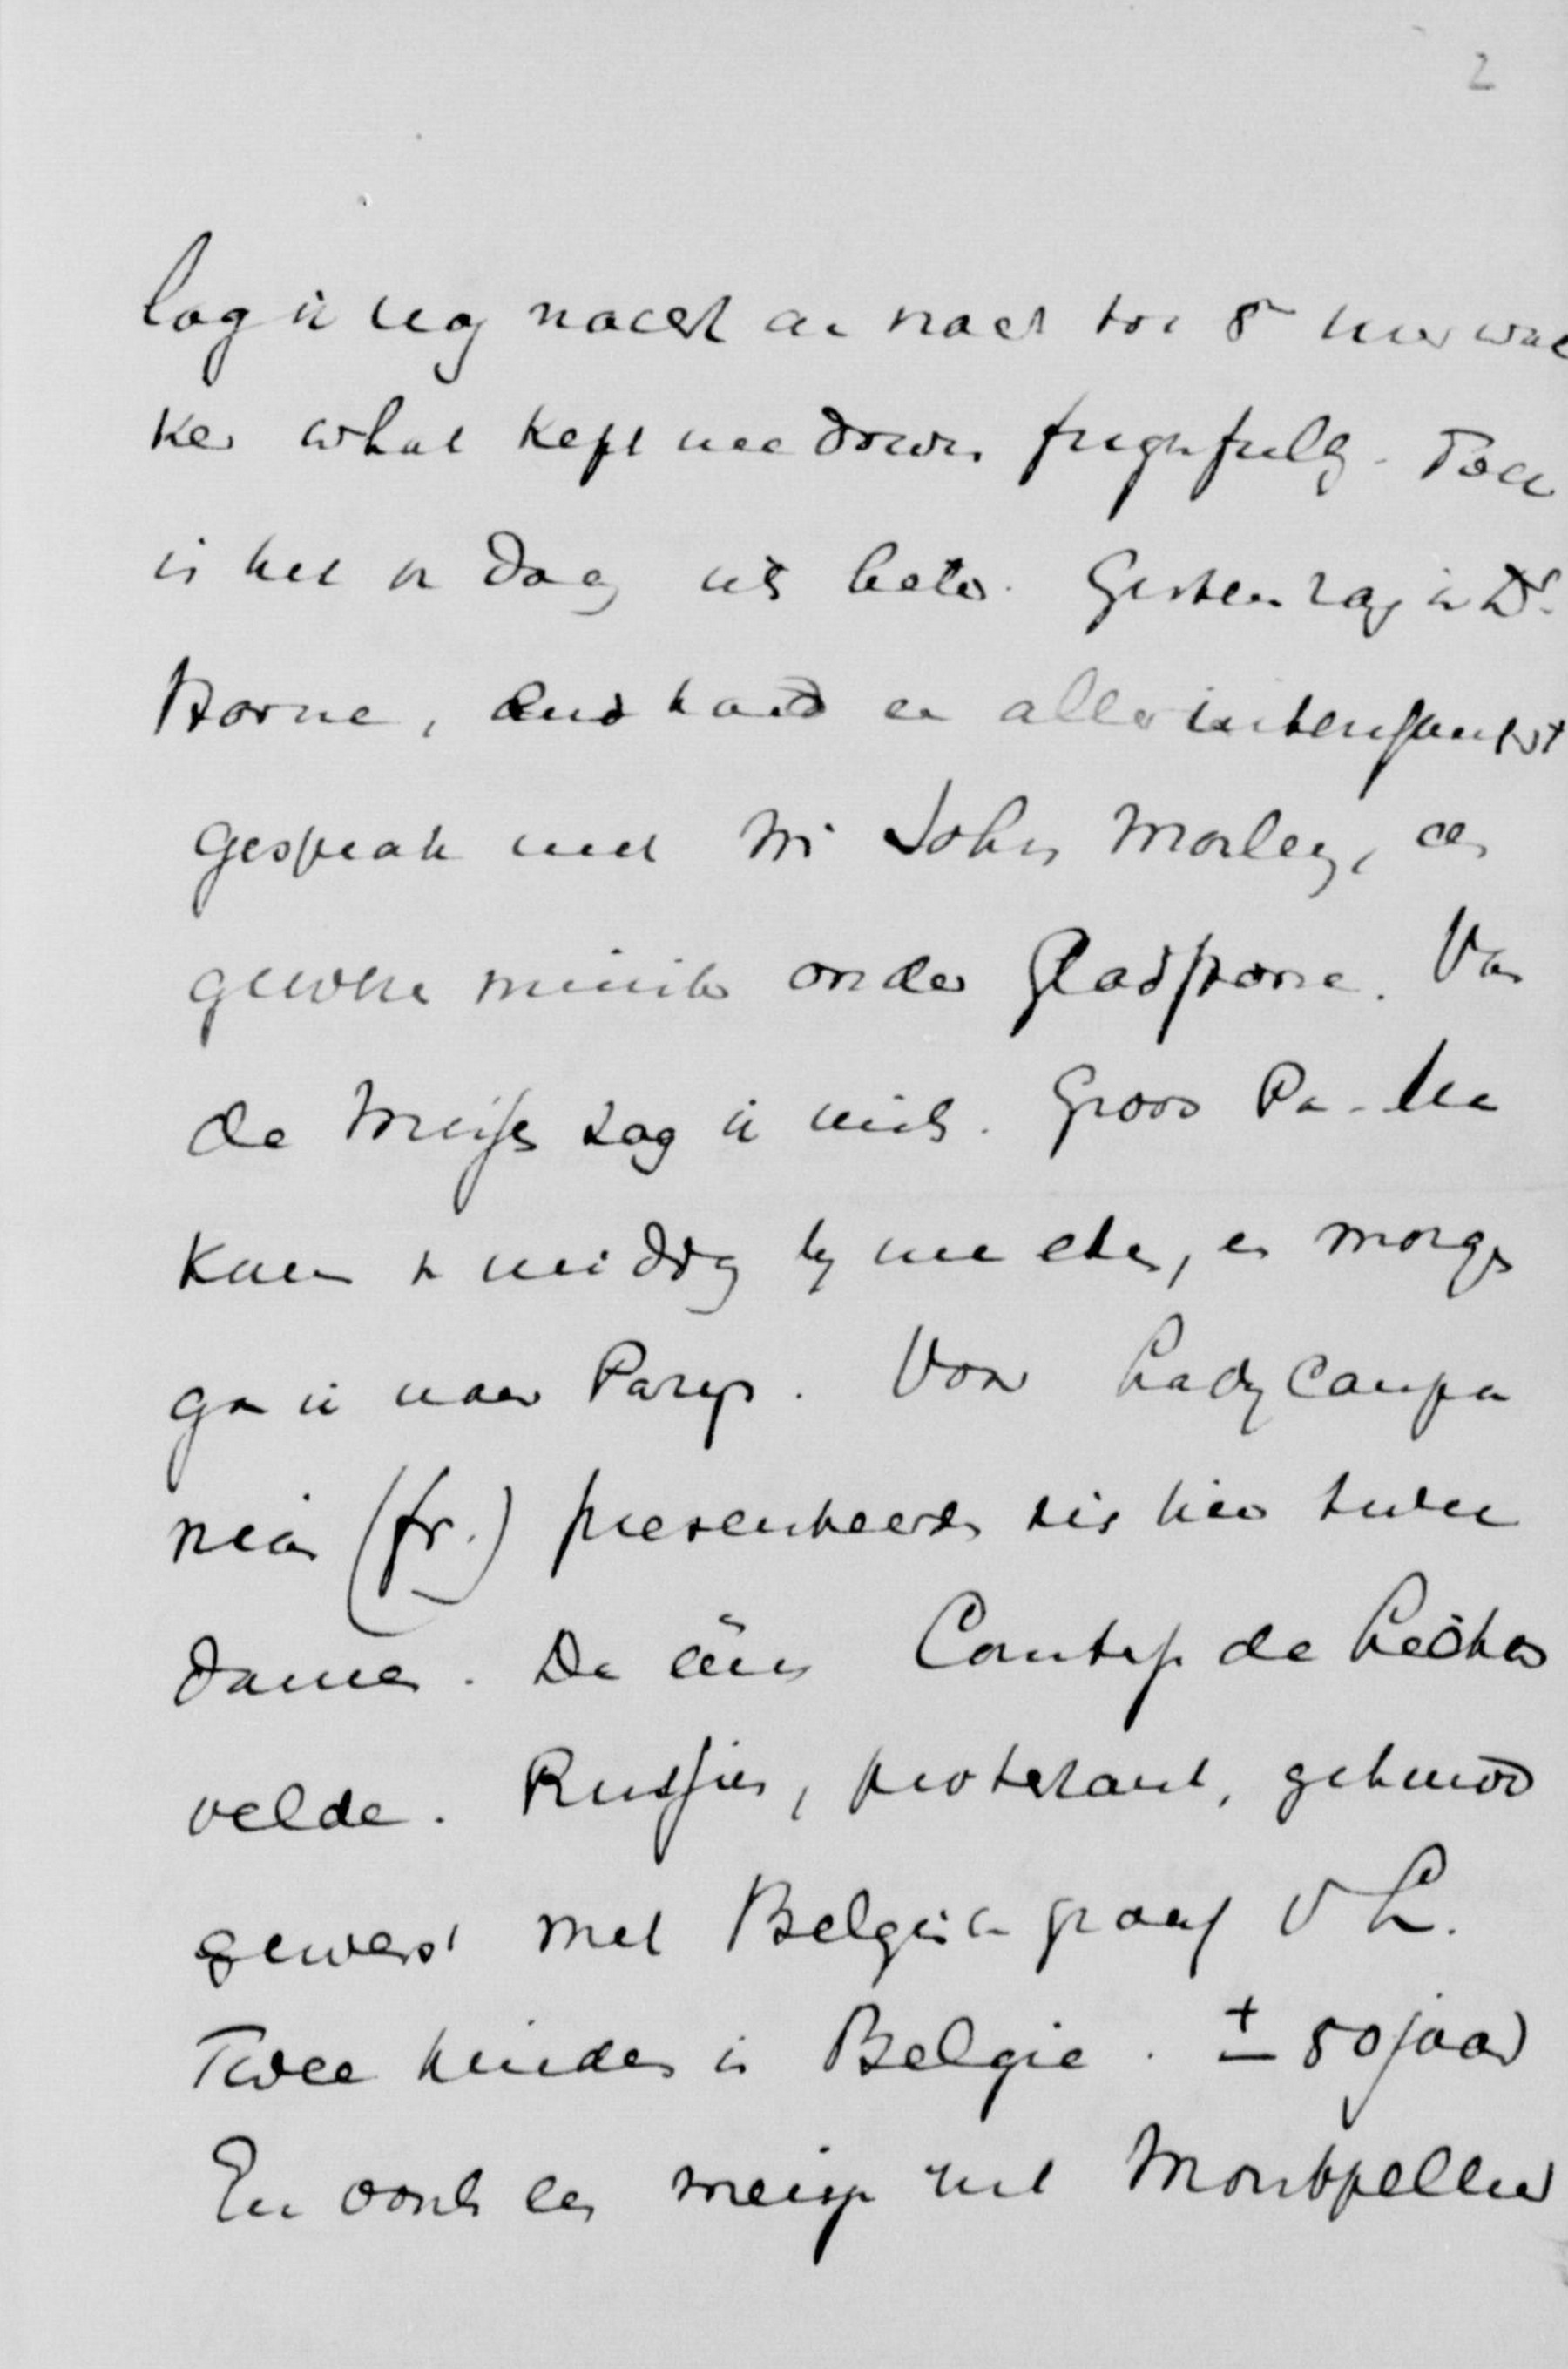 2
lag ik nog nacht aan nacht tot 8 uur wak
ker what kept me down frightfully. Toch
is het v. dag iets beter. Gisteren zag ik Dr
Borne, and had een allerinteressantst
gesprek met Mr John Morley, een
gewezen minister onder Gladstone. Van
de meisjes zag ik niets. Groos Pa
Kuen v. middag by me eten, en morgen
ga ik naar Parijs. Voor Lady Compa
nion (fr.) presenteerden zich hier twee
dames. De eene Comtesse de Lichter
velde. Russin, protestant, getrouwd
geweest met Belgisch graaf v L.
Twee kinderen in België. ± 50 jaar
En oont een meisje uit Montpellier